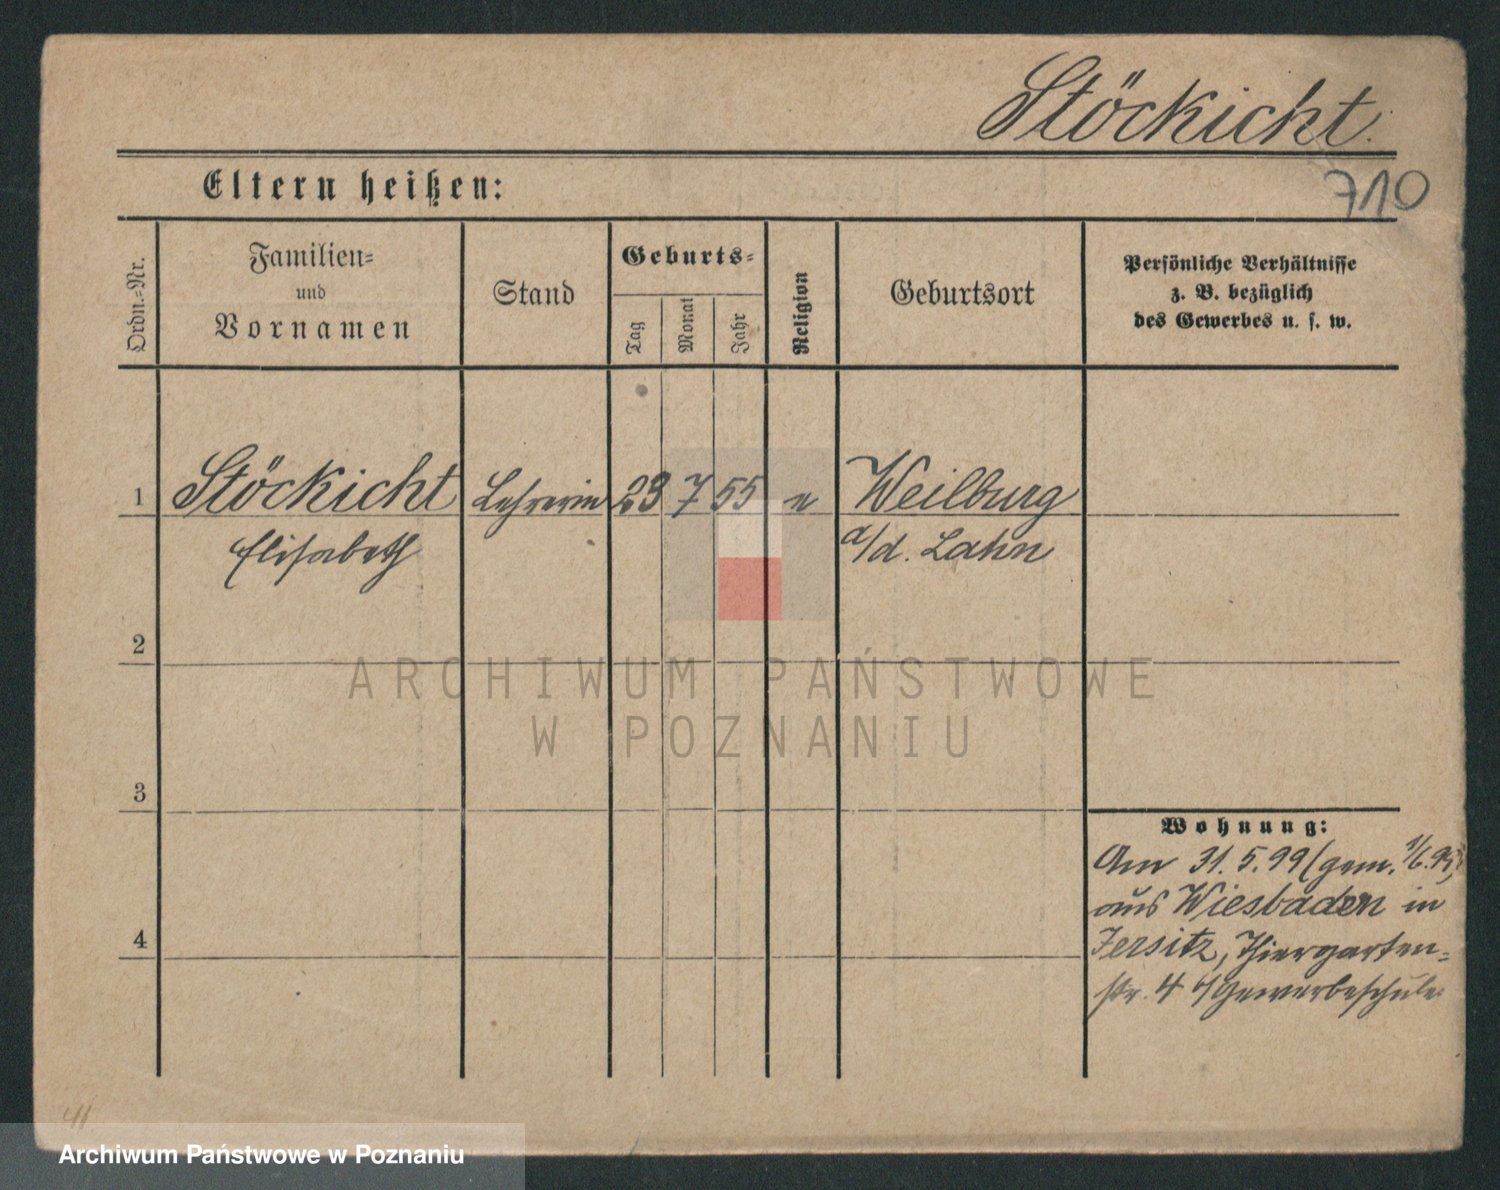 Stöckicht.
710
Eltern heißen:
Ordn.=Nr.
Familien=
und
Vornamen
Stand
Geburts=
Tag
Monat
Jahr
Religion
Geburtsort
Persönliche Verhältnisse
z. B. bezüglich
des Gewerbes u. s. w.
1 Stöckicht Lehrerin 23 7 55 e Weilburg
Elisabeth a/d. Lahn
2
ARCHIWUM PAŃSTWOWE
W POZNANIU
3
Wohnung:
Am 31. 5. 99 (gem.
aus Wiesbaden in
4
Jersitz, Thiergarten=
str. 4 Gewerbeschule
Archiwum Państwowe w Poznaniu